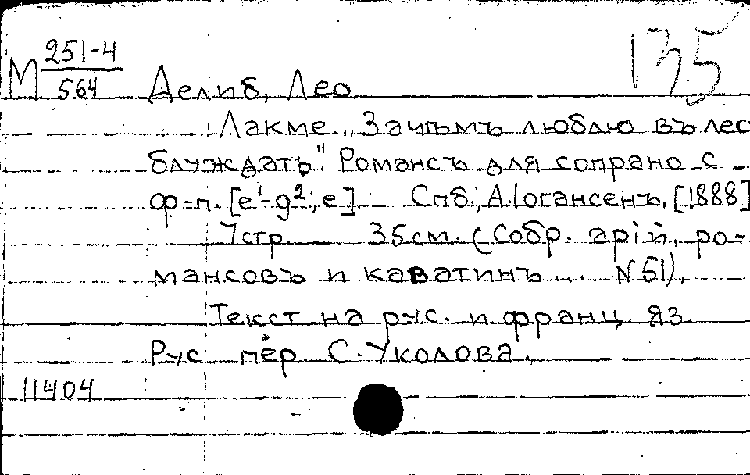 М 251-4/564
135
Делиб, Лео
Лакме. „Зачѣмъ люблю въ лес
блуждать" Романсъ для сопрано с
ф-п. [e¹-g²; e] Спб., А. Иогансенъ, [1888]
7 стр. 35 см. (Собр. арiй, ро-
мансовъ и каватинъ... N 51).
Текст на рус. и франц. яз.
Рус пер С. Уколова.
11404